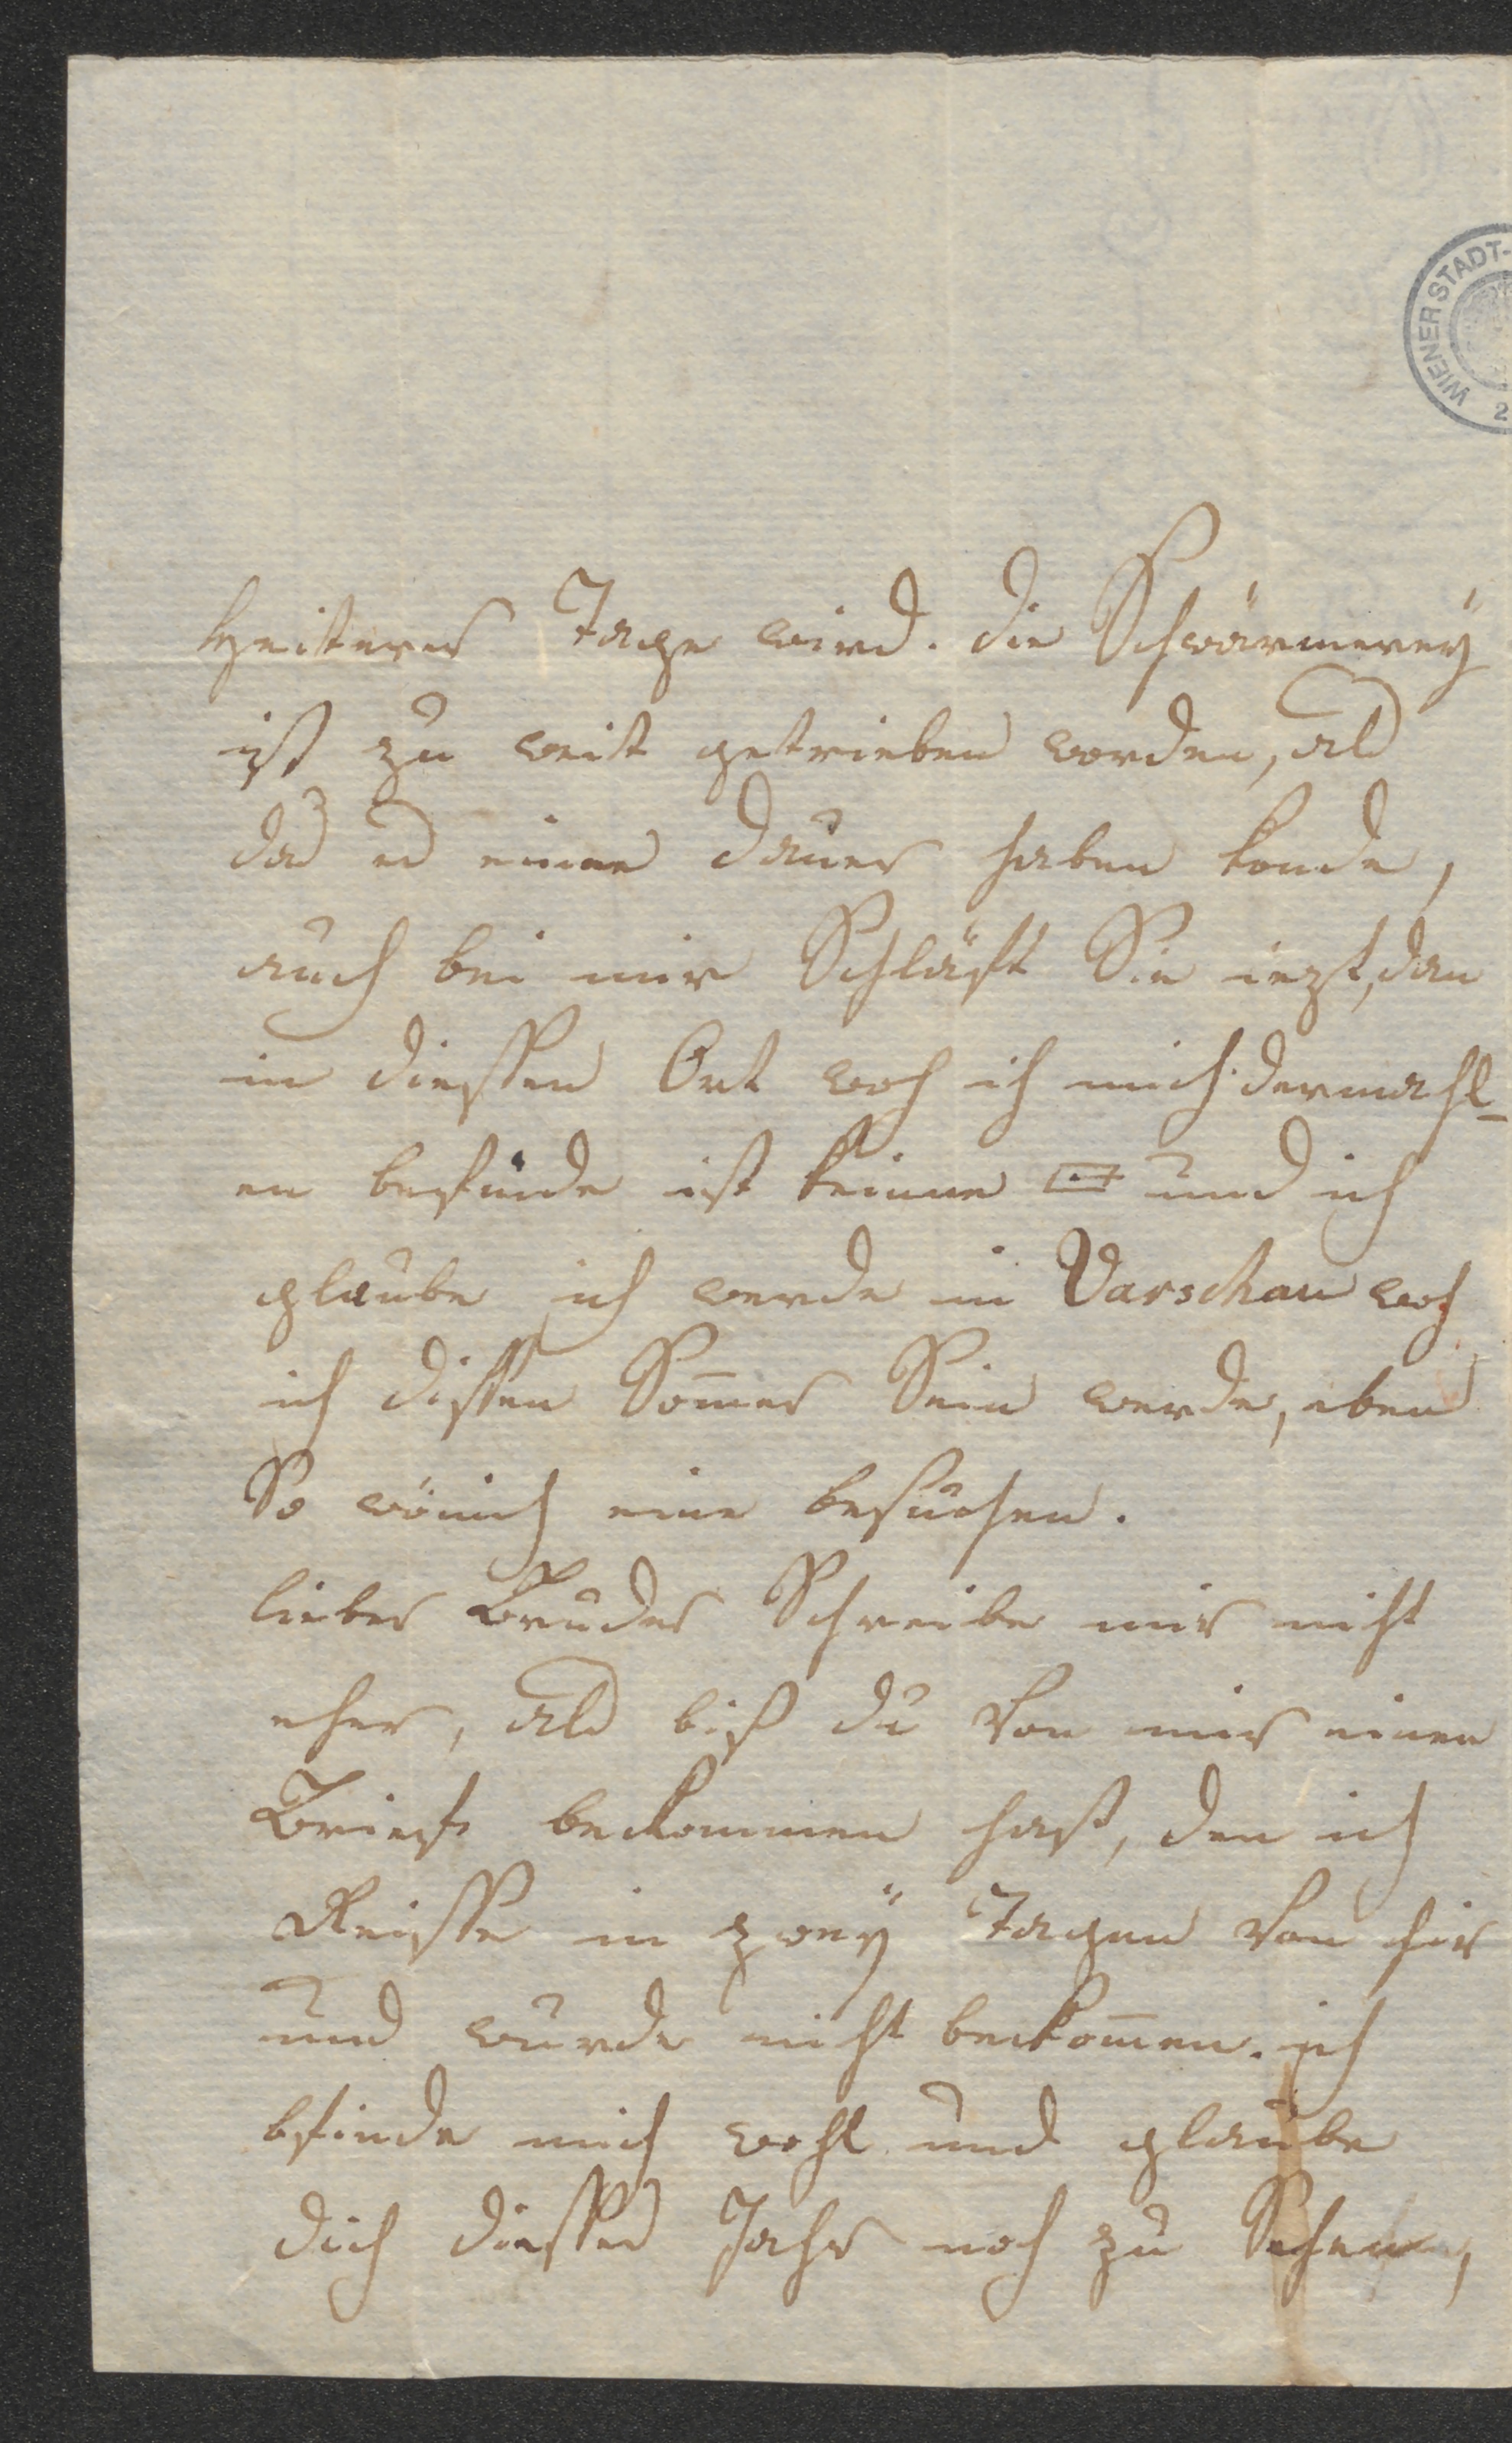 WIENER STADT-
2
Heiterer Tage wird. die Schwärmereÿ
ist zu weit getrieben worden, als
das es eine Dauer haben konde,
auch bei mir Schläft Sie iezt, dan
in diessen Ort woh ich mich dermahl-
en befünde ist keinne □ und ich
glaube ich werde in Varschau woh
ich dissen Som̄er Sein werde, eben
So wönich eine besuchen.
lieber Bruder Schreibe mir nicht
eher, als biß du von mir einen
Brief beckommen hast, den ich
Reisse in zweÿ Tagen von hir
und wurde nicht beckom̄en. ich
bfinde mich wohl und glaube
dich diesses Jahr noch zu Sehen,